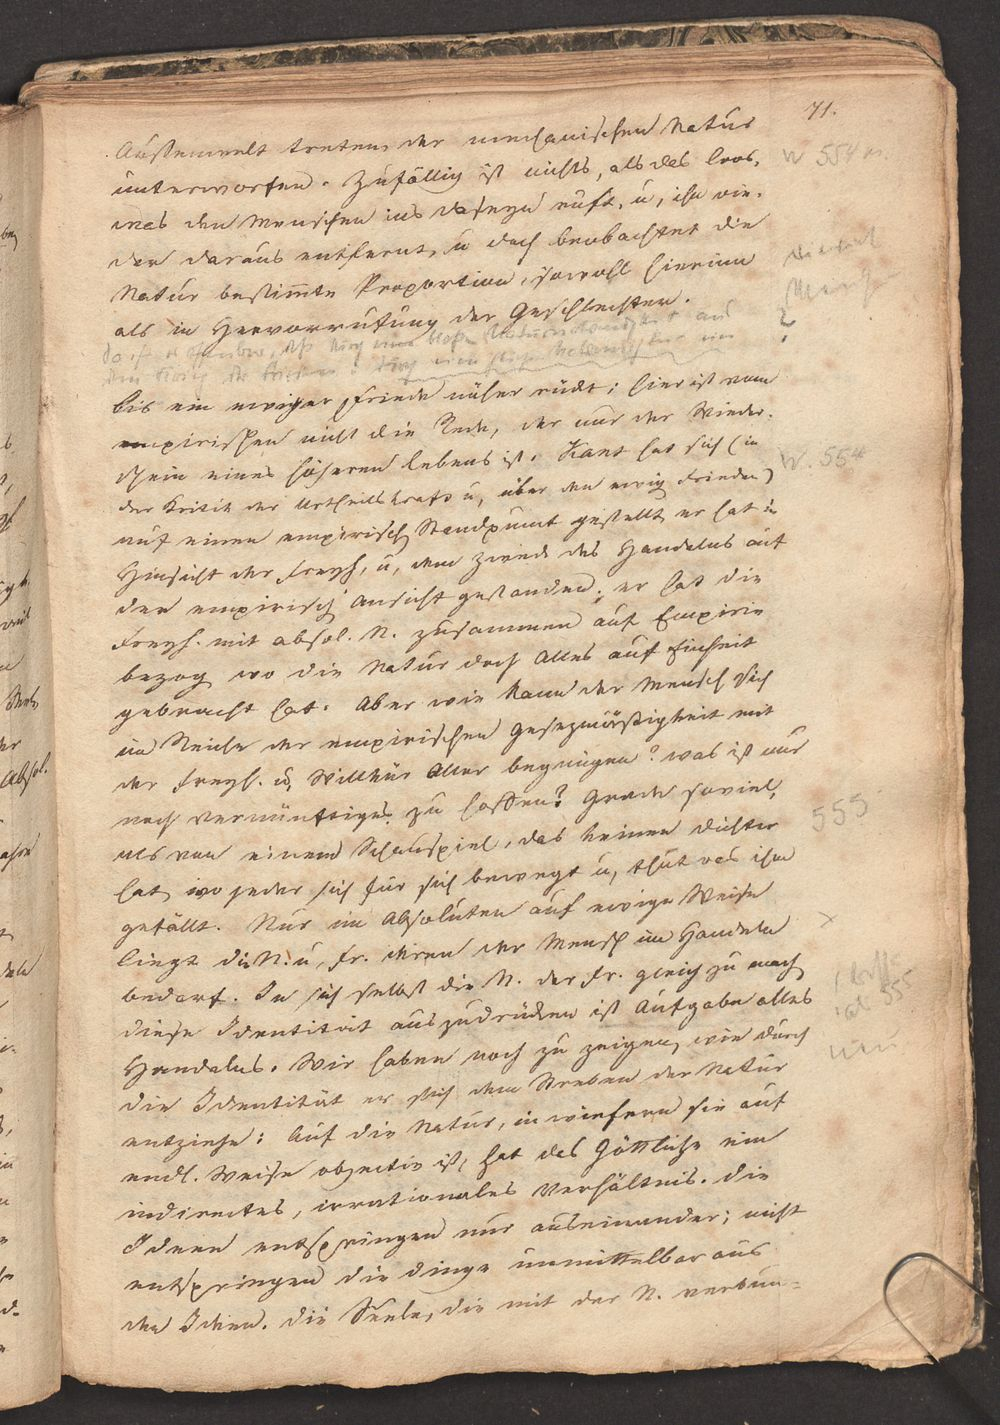 71.
Aussenwelt treten, der mechanischen Natur
unterworfen. Zufällig ist nichts, als das Loos,
was den Menschen ins Daseyn ruft, u, ihn wie-
der daraus entfernt, u doch beobachtet die
Natur bestimmte Proportion, sowohl hierinn
als in Hervorrufung der Geschlechter.
bis ein ewiger Friede näher rückt; hier ist vom
empirischen nicht die Rede, der nur der Wieder-
schein eines höheren Lebens ist. Kant hat sich (in
der Kritik der Urtheilskraft u, über den ewig Frieden)
auf einen empirisch Standpunct gestellt er hat in
Hinsicht der Freyh, u, dem Zweck des Handelns auf
der empirisch Ansicht gestanden; er hat die
Freyh. mit absol. N. zusammen auf Empirie
bezog wo die Natur doch Alles auf Einheit
gebracht hat. Aber wie kann der Mensch sich
im Reiche der empirischen Gesezmäßigkeit mit
der Freyh. u, Willkür Aller begnügen? was ist nur
noch vernünftiges zu hoffen? Grade soviel,
als von einem Schauspiel, das keinen Dichter
hat, wo jeder sich für sich bewegt u, thut was ihm
gefällt. Nur im Absoluten auf ewige Weise
liegt die N. u, Fr. deren der Mensch im Handeln
bedarf. In sich selbst die N. der Fr. gleich zu mach
diese Identität auszudrücken ist Aufgabe alles
Handelns. Wir haben noch zu zeigen, wie durch
die Identität er sich dem Streben der Natur
entziehe: Auf die Natur, in wiefern sie auf
endl. Weise objectiv ist, hat das Göttliche ein
indirectes, irrationales Verhältnis. Die
Ideen entspringen nur auseinander; nicht
entspringen die Dinge unmittelbar aus
den Ideen. Die Seele, die mit der N. verbun-
W 554
W. 554
555